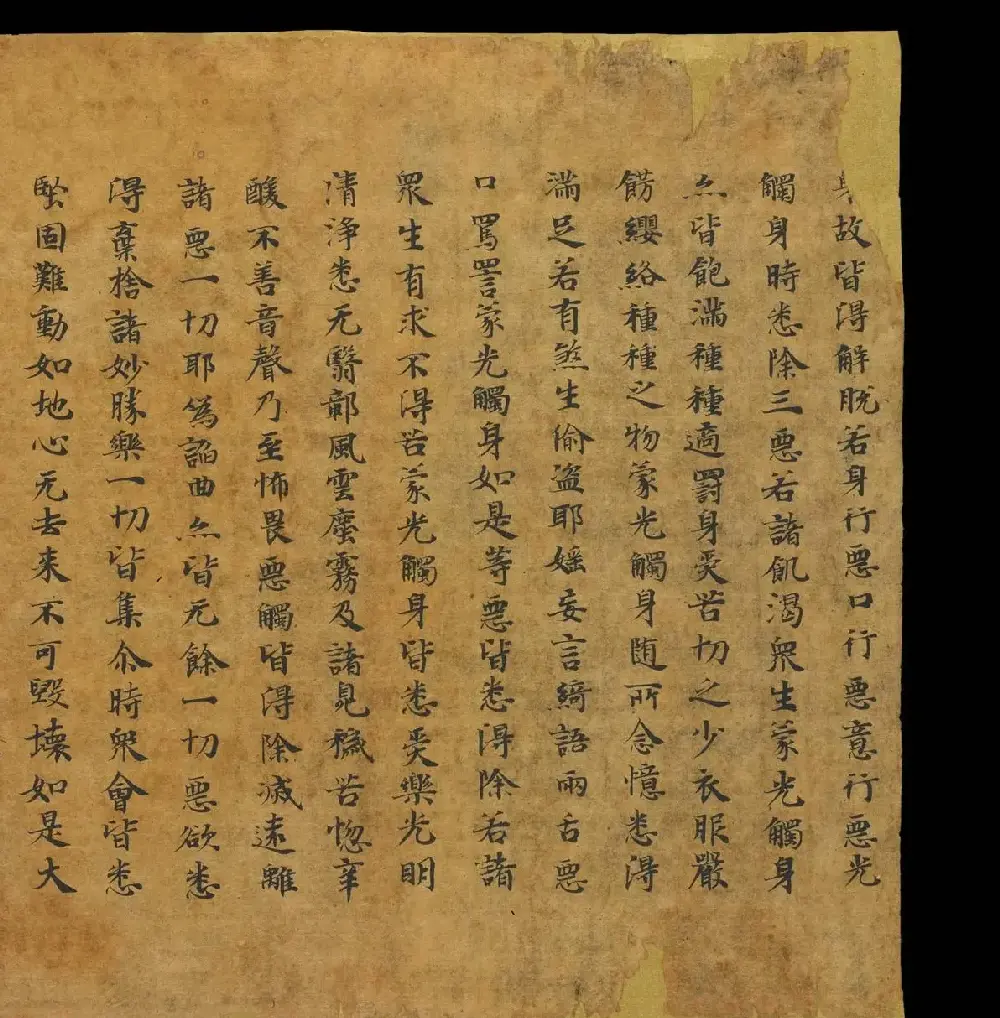 身故皆得解脫若身行惡口行惡意行惡光
觸身時悉除三惡若諸飢渴衆生蒙光觸身
亦皆飽滿種種適罰身受苦切之少衣服嚴
餝纓絡種種之物蒙光觸身随所念憶悉得
滿足若有煞生偷盜耶婬妄言綺語兩舌惡
口罵詈蒙光觸身如是等惡皆悉得除若諸
衆生有求不得苦蒙光觸身皆悉受樂光明
清淨悉无翳鄣風雲塵霧及諸見穢苦惚辛
酸不善音聲乃至怖畏惡觸皆得除滅遠離
諸惡一切耶爲諂曲亦皆无餘一切惡欲悉
得棄捨諸妙勝樂一切皆集尒時衆會皆悉
堅固難動如地心无去来不可毀壞如是大